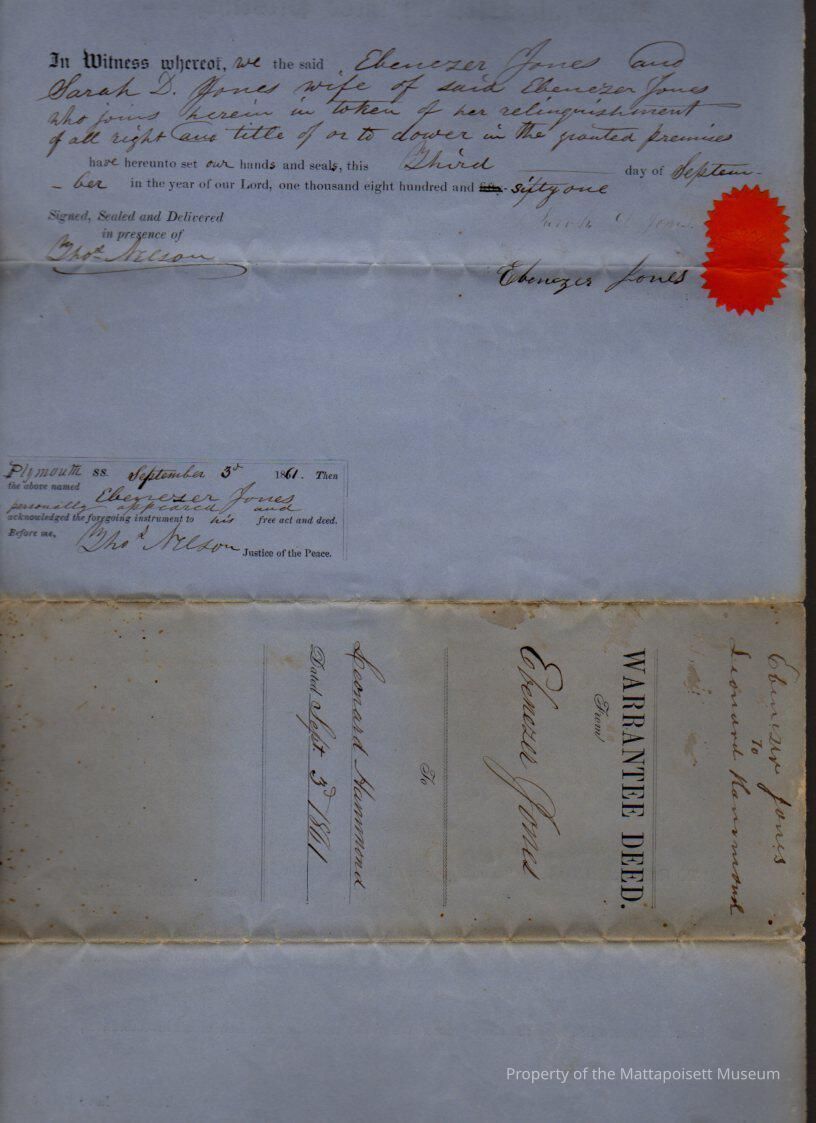 In Witness whereof, we the said Ebenezer Jones and
Sarah D. Jones wife of said Ebenezer Jones
who joins herein in token of her relinquishment
of all right and title of or to dower in the granted premises
have hereunto set our hands and seals, this Third day of Septem-
-ber in the year of our Lord, one thousand eight hundred and sixty one
Signed, Sealed and Delivered
in presence of
Thos. Nelson
Sarah D Jones
Ebenezer Jones
Plymouth ss. September 3d 1861. Then
the above named Ebenezer Jones
personally appeared and
acknowledged the foregoing instrument to his free act and deed.
Before me, Thos. Nelson Justice of the Peace.
Ebenezer Jones
To
Leonard Hammond
WARRANTEE DEED.
From
Ebenezer Jones
To
Leonard Hammond
Dated Sept 3d 1861
Property of the Mattapoisett Museum